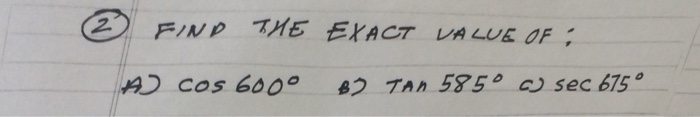 ② FIND THE EXACT VALUE OF :
A) cos 600° B) TAn 585° c) sec 675°